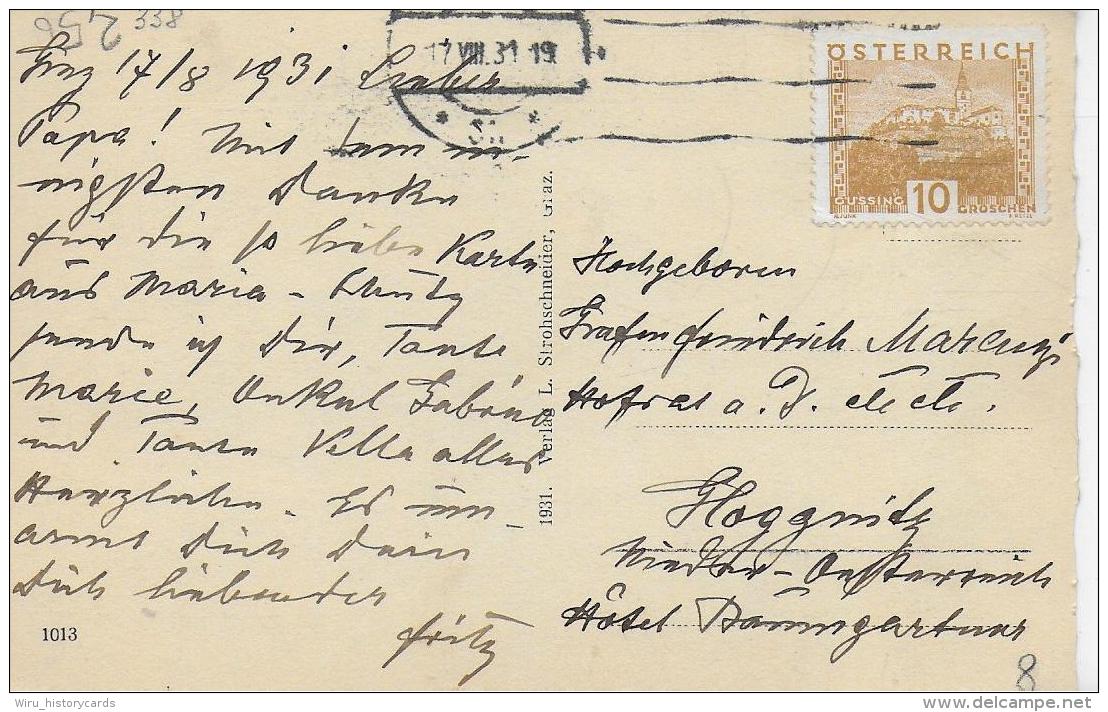 256 338
17/8 1931 Lieber
Papa! Mit dem in-
nigsten Danke
für die so liebe Karte
aus Maria-Schutz
sende ich Dir, Tante
Marie, Onkel
und Tante Vella alles
Herzliche. Es um-
armt Dich Dein
Dich liebender
Fritz
1013
17.VIII.31 19
* 5a *
ÖSTERREICH
GÜSSING 10 GROSCHEN
1931. Verlag L. Strohschneider, Graz.
Hochgeboren
Grafen Friedrich Marenzi
Hofrat a. D. etc etc.
Gloggnitz
Nieder-Oesterreich
Hôtel Baumgartner
8
Wiru_historycards
delcampe.net